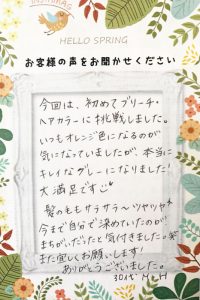 HELLO SPRING
お客様の声をお聞かせください
今回は、初めてブリーチ・
ヘアカラーに挑戦しました。
いつもオレンジ色になるのが
気になっていましたが、本当に
キレイなグレーになりました!
大満足です
髪の毛もサラサラ〜ツヤツヤ
今まで自分で染めていたのが、
まちがいだったと気付きました。笑
また宜しくお願いします!
ありがとうございました。
30代 M.H